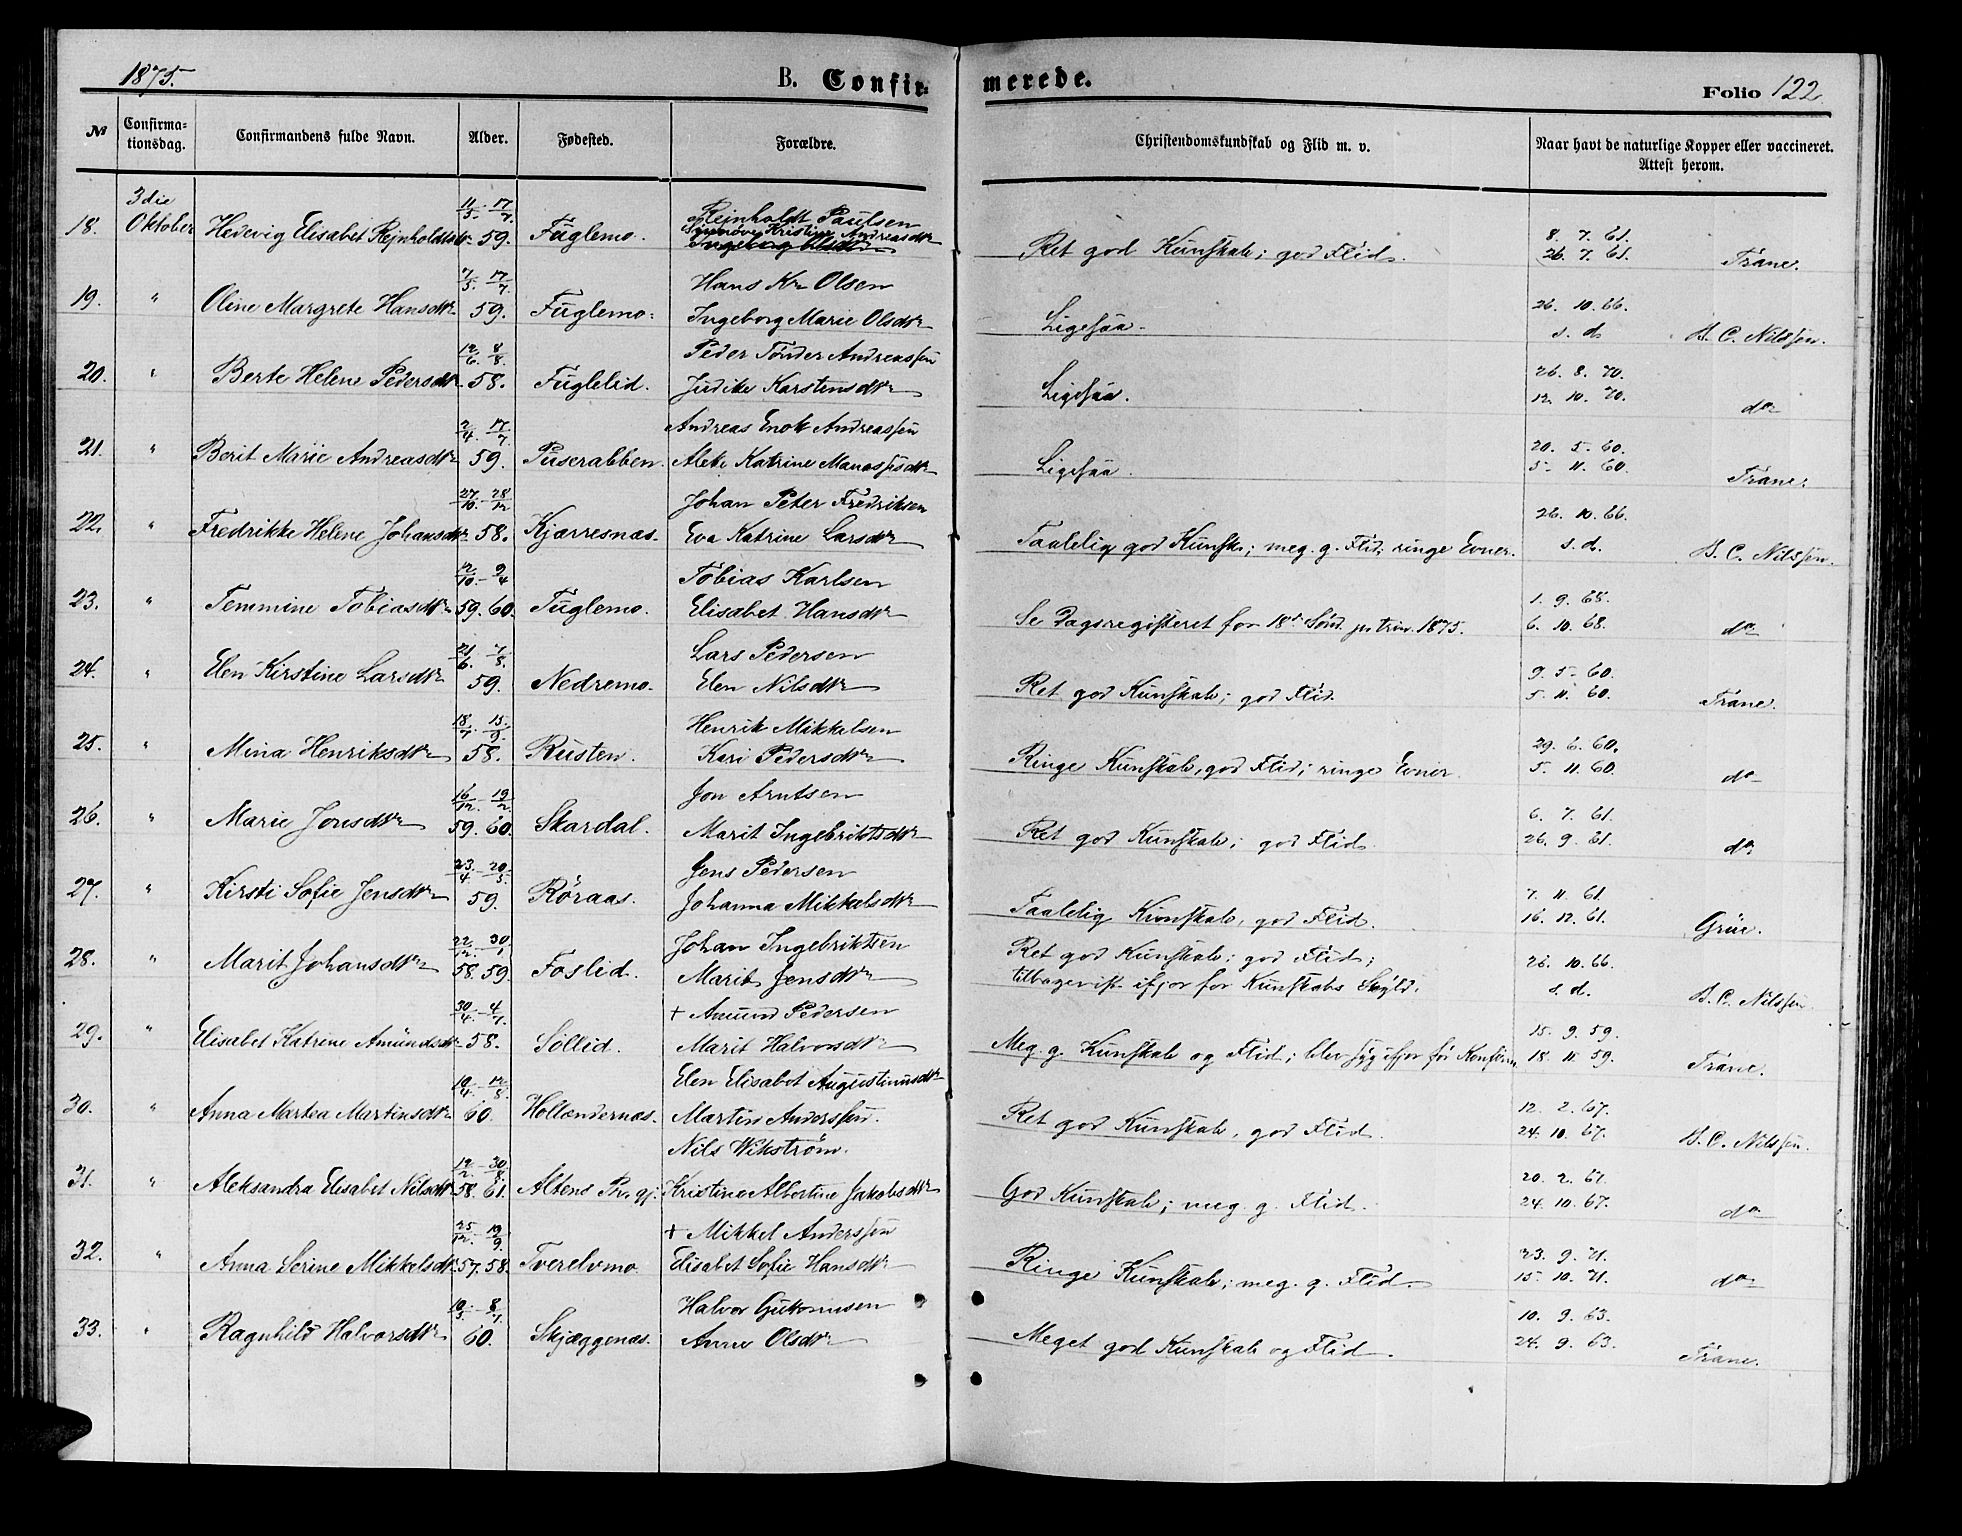 1875.
B. Confir-
merede.
Folio 122
№
Confirma-
tionsdag.
Confirmandens fulde Navn.
Alder.
Fødested.
Forældre.
Christendomskundskab og Flid m. v.
Naar havt de naturlige Kopper eller vaccineret.
Attest herom.
3die 11/5. 17/7. Rejnholdt Paulsen
18. Oktober Hedevig Elisabet Rejnholdtsdtr 59. Fuglemo. Synnøve Kristine Andreasdtr
Ingeborg Olsdtr
Ret god Kunskab; god Flid. 8. 7. 61.
26. 7. 61. Trane.
7/5. 17/7. Hans Kr. Olsen
19. " Oline Margrete Hansdtr 59. Fuglemo. Ingeborg Marie Olsdtr
Ligesaa. 26. 10. 66.
s. d. H. C. Nilssen.
12/6. 8/8. Peder Tønder Andreassen
20. " Berte Helene Pedersdtr 58. Fuglelid. Judike Karstensdtr
Ligesaa. 26. 8. 70.
12. 10. 70. do
2/4. 17/7. Andreas Enok Andreassen
21. " Berit Marie Andreasdtr 59. Puserabben. Aleke Katrine Manassesdtr
Ligesaa. 20. 5. 60.
5. 11. 60. Trane.
27/10. 28/12 Johan Peter Fredriksen
22. " Fredrikke Helene Johansdtr 58. Kjærresnæs. Eva Katrine Larsdtr
Taalelig god Kunsk.; meg. g. Flid; ringe Evner. 26. 10. 66.
s. d. H. C. Nilssen.
12/10. 9/4 Tobias Karlsen
23. " Temmine Tobiasdtr 59. 60. Fuglemo. Elisabet Hansdtr
Se Dagsregisteret for 18de Sønd. p. trin. 1875. 1. 9. 68.
6. 10. 68. do
21/6. 7/8. Lars Pedersen
24. " Elen Kirstine Larsdtr 59. Nedremo. Elen Nilsdtr
Ret god Kunskab; god Flid. 9. 5. 60.
5. 11. 60. Trane.
18/7. 15/9. Henrik Mikkelsen
25. " Mina Henriksdtr 58. Rusten. Kari Pedersdtr
Ringe Kunskab, god Flid; ringe Evner. 29. 6. 60.
5. 11. 60. do
16/12. 19/2. Jon Arntsen
26. " Marie Jonsdtr 59. 60. Skardal. Marit Ingebriktsdtr
Ret god Kunskab; god Flid. 6. 7. 61.
26. 9. 61. do
23/4. 20/5. Jens Pedersen
27. " Kirsti Sofie Jensdtr 59. Røraas. Johanna Mikkelsdtr
Taalelig Kunskab, god Flid. 7. 11. 61.
16. 12. 61. Grüe.
22/12. 30/1 Johan Ingebriktsen
28. " Marit Johansdtr 58. 59. Foslid. Marit Jensdtr
Ret god Kunskab; god Flid;
tilbagevist ifjor for Kunskabs Skyld. 26. 10. 66.
s. d. H. C. Nilssen.
30/4. 4/7. + Amund Pedersen
29. " Elisabet Katrine Amundsdtr 58. Søllid. Marit Halvorsdtr
Meg. g. Kunskab og Flid; blev syg ifjor før Konfirm. 15. 9. 59.
18. 11. 59. Trane.
19/4. 12/8. Elen Elisabet Augustinusdtr
30. " Anna Martea Martinsdtr 60. Hollændernæs. Martin Anderssen.
Ret god Kunskab, god Flid. 12. 2. 67.
24. 10. 67. H. C. Nilssen.
12/2. 30/8. Nils Wikstrøm.
31. " Aleksandra Elisabet Nilsdtr 58. 61. Altens Pr. gj. Kristine Albertine Jakobsdtr
God Kunskab; meg. g. Flid. 20. 2. 67.
24. 10. 67. do
25/12. 19/9. + Mikkel Anderssen
32. " Anna Serine Mikkelsdtr 57. 58. Tverelvmo. Elisabet Sofie Hansdtr
Ringe Kunskab; meg. g. Flid. 23. 9. 71.
15. 10. 71. do
10/3. 8/7. Halvor Guttormsen
33. " Ragnhild Halvorsdtr 60. Skjæggenæs. Anne Olsdtr
Meget god Kunskab og Flid. 10. 9. 63.
24. 9. 63. Trane.